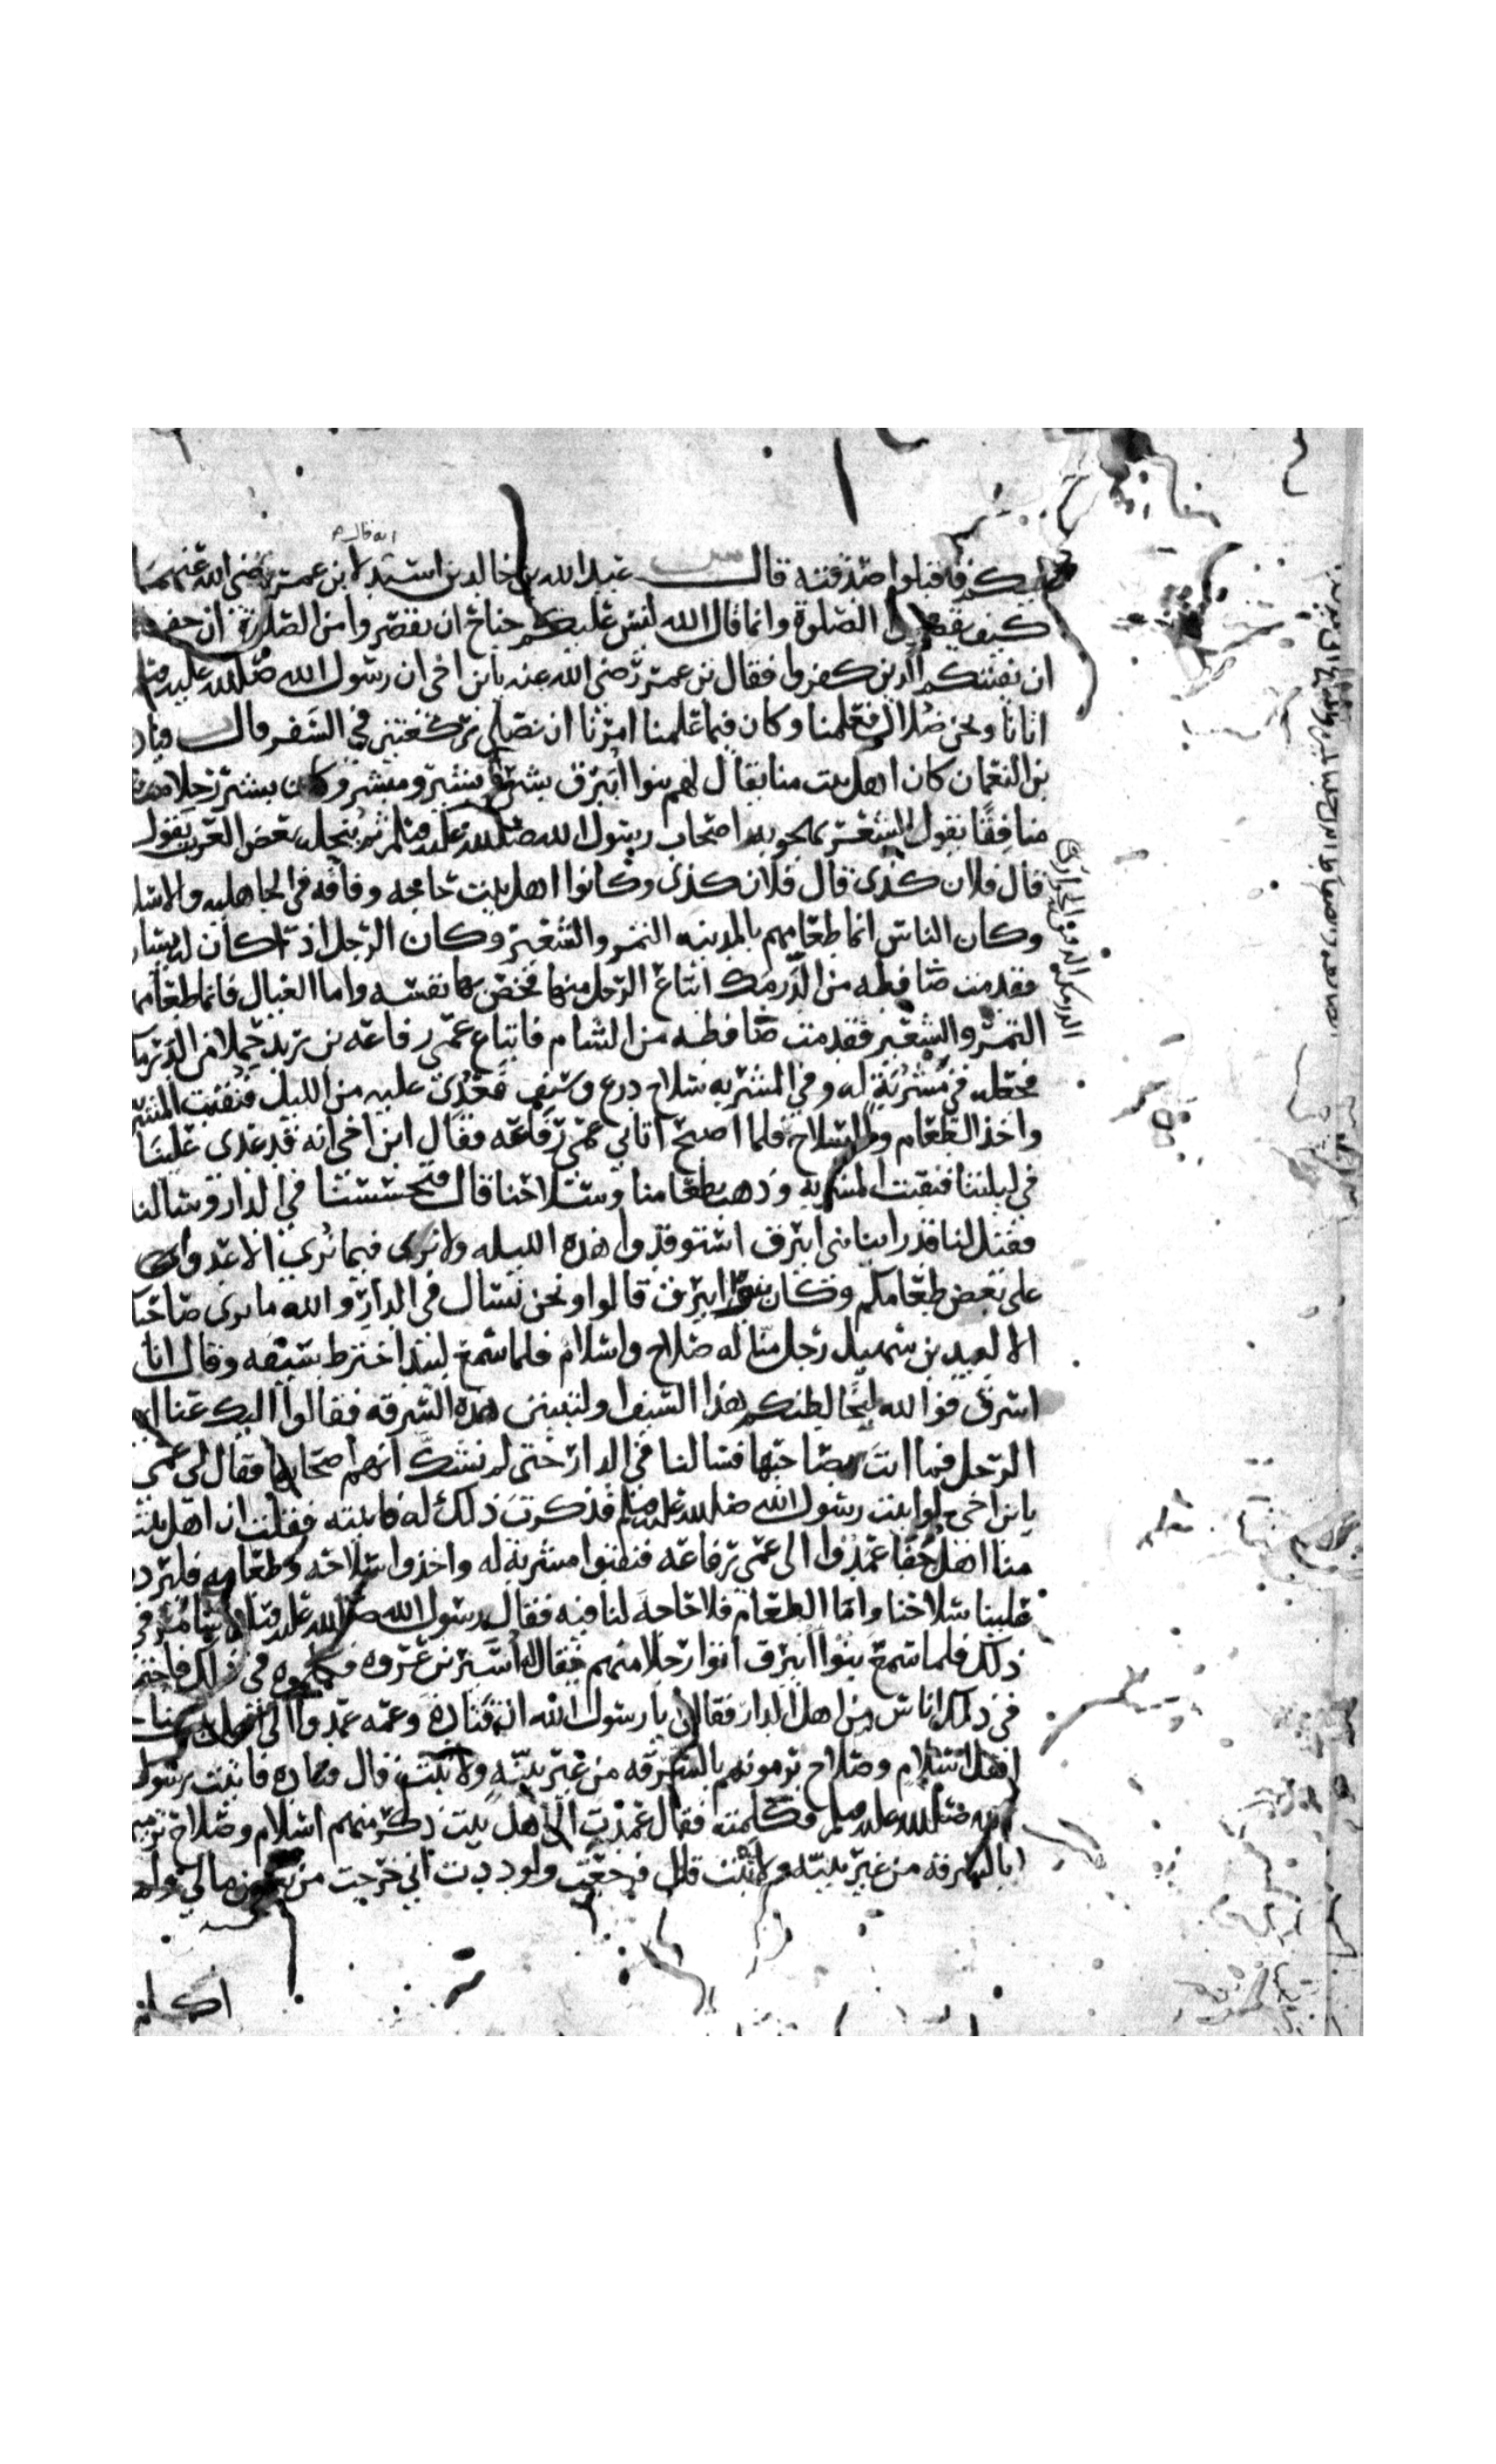 عليكم فاقبلوا صدقته قال عبد الله بن خالد بن اسيد لابن عمر رضي الله عنهما
انه قال
كيف نقصر الصلوة وانما قال الله ليس عليكم جناح ان تقصروا من الصلوة ان خفتم
ان يفتنكم الذين كفروا فقال بن عمر رضي الله عنه يابن اخي ان رسول الله صلى الله عليه وسلم
اتانا ونحن ضلال فعلمنا وكان فيما علمنا امرنا ان نصلي ركعتين في السفر قال قتاد
بن النعمان كان اهل بيت منا يقال لهم بنوا ابيرق بشر وبشير ومبشر وكان بشير رجلا
منافقا يقول الشعر يهجو به اصحاب رسول الله صلى الله عليه وسلم ثم ينحله بعض العرب يقول
قال فلان كذى قال فلان كذى وكانوا اهل بيت حاجه وفاقه في الجاهليه والاسلا
وكان الناس انما طعامهم بالمدينه التمر والشعير وكان الرجل اذا كان له يسار
فقدمت ضافطه من الدرمك ابتاع الرجل منها فخص بها نفسه واما العيال فانما طعامهم
التمر والشعير فقدمت ضافطه من الشام فابتاع عمي رفاعه بن زيد حملا من الدرمك
فجعله في مشربة له وفي المشربه سلاح درع وسيف فعدى عليه من الليل فنقبت المشر
واخذ الطعام والسلاح فلما اصبح اتاني عمي رفاعه فقال ابن اخي انه قد عدى علينا
في ليلتنا فنقبت المشربه وذهب بطعامنا وسلاحنا قال فتحسسنا في الدار وسالنا
فقيل لنا قد راينا بني ابيرق استوقدوا هذه الليله ولا نرى فيما نرى الا
على بعض طعامكم وكان بنوا ابيرق قالوا ونحن نسال في الدار والله ما نرى صاحبكم
الا لبيد بن سهيل رجل منا له صلاح واسلام فلما سمع لبيد اخترط بسيفه وقال انا
اسرق فوالله ليخالطنكم هذا السيف او لتبينن هذه السرقه فقالوا اليك عنا ايها
الرجل فما انت بصاحبها فسالنا في الدار حتى لم نشك انهم اصحابها فقال لي عمي
يابن اخي لو اتيت رسول الله صلى الله عليه وسلم فذكرت ذلك له فاتيته فقلت ان اهل بيت
منا اهل جفا عمدوا الى عمي رفاعه فنقبوا مشربة له واخذوا سلاحه وطعامه فليرد
علينا سلاحنا واما الطعام فلا حاجه لنا فيه فقال رسول الله صلى الله عليه وسلم سامر في
ذلك فلما سمع بنوا ابيرق اتوا رجلا منهم يقال له اسير بن عروه فكلموه في ذلك فاجتمع
في ذلك اناس من اهل الدار فقالوا يا رسول الله ان قتاده وعمه عمدوا الى اهل بيت منا
اهل اسلام وصلاح يرمونهم بالسرقه من غير بينة ولا ثبت قال قتاده فاتيت رسول
الله صلى الله عليه وسلم فكلمته فقال عمدت الى اهل بيت ذكر منهم اسلام وصلاح ترميهم
بالسرقه من غير بينه ولا ثبت قال فرجعت ولوددت اني خرجت من بعض مالي ولم
اكلم
الدرمك الدقيق الحوارى